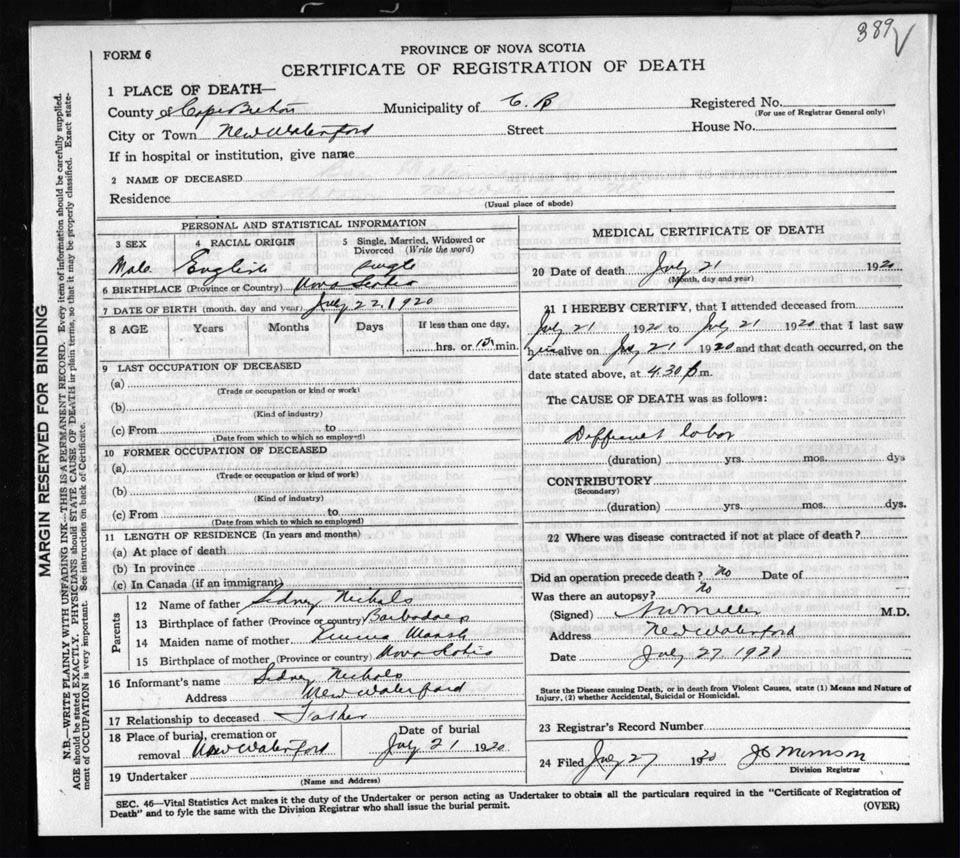 389
FORM 6
PROVINCE OF NOVA SCOTIA
CERTIFICATE OF REGISTRATION OF DEATH
1 PLACE OF DEATH—
County of Cape Breton Municipality of C. B Registered No.
(For use of Registrar General only)
City or Town New Waterford Street House No.
If in hospital or institution, give name
2 NAME OF DECEASED
Residence
(Usual place of abode)
PERSONAL AND STATISTICAL INFORMATION
3 SEX 4 RACIAL ORIGIN 5 Single, Married, Widowed or
Divorced (Write the word)
Male English single
6 BIRTHPLACE (Province or Country) Nova Scotia
7 DATE OF BIRTH (month, day and year) July 22, 1920
8 AGE Years Months Days If less than one day,
hrs. or min.
9 LAST OCCUPATION OF DECEASED
(a)
(Trade or occupation or kind or work)
(b)
(Kind of industry)
(c) From to
(Date from which to which so employed)
10 FORMER OCCUPATION OF DECEASED
(a)
(Trade or occupation or kind of work)
(b)
(Kind of industry)
(c) From to
(Date from which to which so employed)
11 LENGTH OF RESIDENCE (In years and months)
(a) At place of death
(b) In province
(c) In Canada (if an immigrant)
Parents
12 Name of father Sidney Nichols
13 Birthplace of father (Province or country) Barbadoes
14 Maiden name of mother Emma Marsh
15 Birthplace of mother (Province or country) Nova Scotia
16 Informant's name Sidney Nichols
Address New Waterford
17 Relationship to deceased Father
18 Place of burial, cremation or Date of burial
removal New Waterford July 21 1920
19 Undertaker
(Name and Address)
MEDICAL CERTIFICATE OF DEATH
20 Date of death July 21 1920
(Month, day and year)
21 I HEREBY CERTIFY, that I attended deceased from
July 21 1920 to July 21 1920 that I last saw
him alive on July 21 1920 and that death occurred, on the
date stated above, at 4.30 p m.
The CAUSE OF DEATH was as follows:
Difficult labor
(duration) yrs. mos. dys
CONTRIBUTORY
(Secondary)
(duration) yrs. mos. dys.
22 Where was disease contracted if not at place of death?
Did an operation precede death? No Date of
Was there an autopsy? No
(Signed) Miller M.D.
Address New Waterford
Date July 27 1920
State the Disease causing Death, or in death from Violent Causes, state (1) Means and Nature of
Injury, (2) whether Accidental, Suicidal or Homicidal.
23 Registrar's Record Number
24 Filed July 27 1920 Morrison
Division Registrar
SEC. 46—Vital Statistics Act makes it the duty of the Undertaker or person acting as Undertaker to obtain all the particulars required in the "Certificate of Registration of
Death" and to fyle the same with the Division Registrar who shall issue the burial permit.
(OVER)
MARGIN RESERVED FOR BINDING
N.B.—WRITE PLAINLY WITH UNFADING INK—THIS IS A PERMANENT RECORD. Every item of information should be carefully supplied.
AGE should be stated EXACTLY. PHYSICIANS should STATE CAUSE OF DEATH in plain terms, so that it may be properly classified. Exact state-
ment of OCCUPATION is very important. See instructions on back of Certificate.